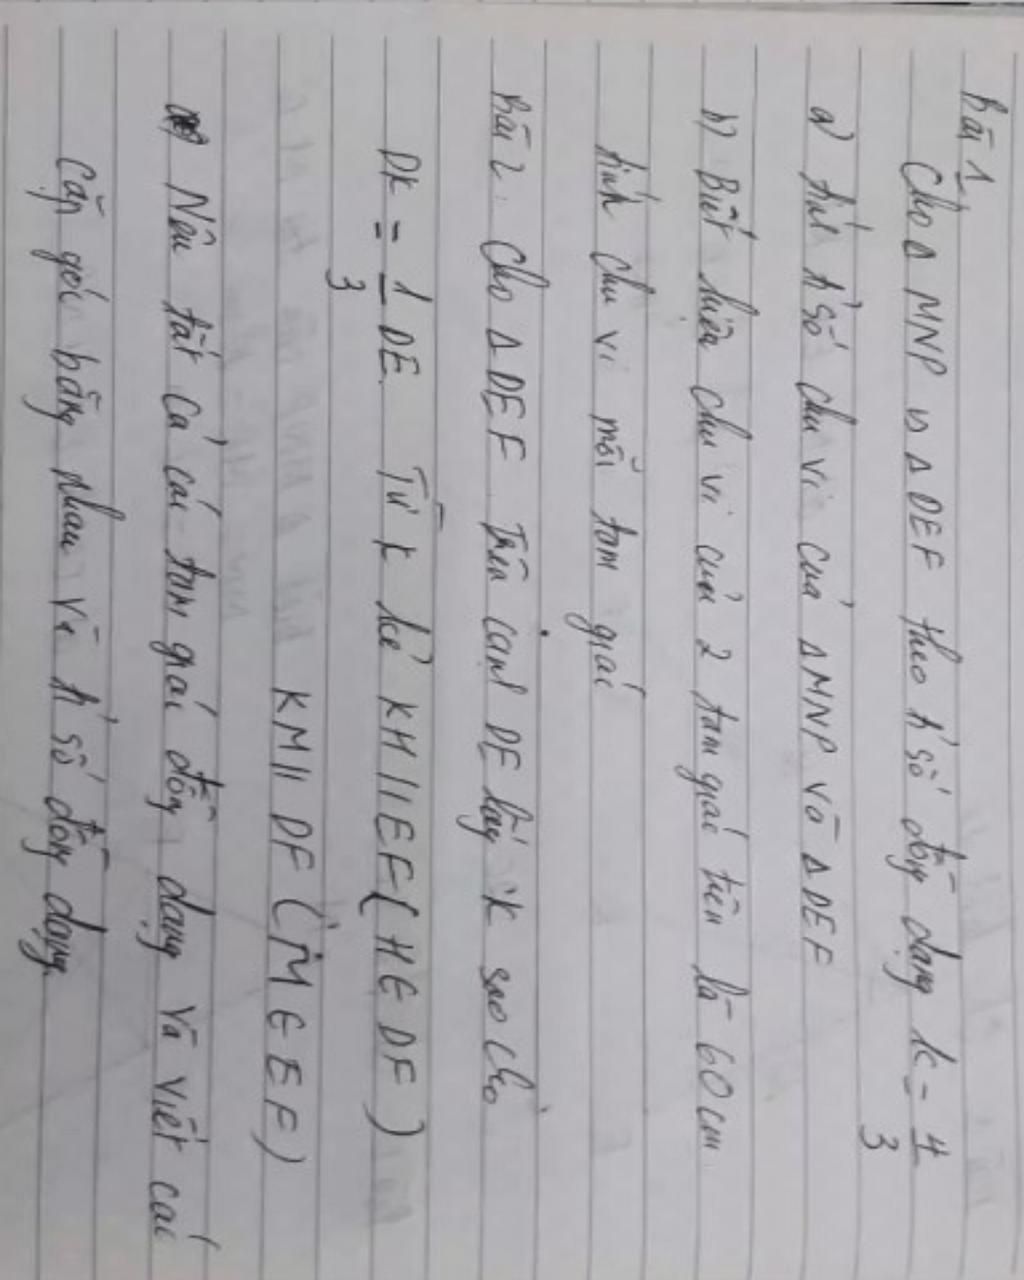 Bài 1,
Cho Δ MNP ᔕ Δ DEF theo tỉ số đồng dạng k = 4/3
a) tính tỉ số chu vi của ΔMNP và ΔDEF
b) Biết hiệu chu vi của 2 tam giác trên là 60cm.
tính chu vi mỗi tam giác
Bài 2. Cho ΔDEF. Trên cạnh DE lấy K sao cho
DK = 1/3 DE. Từ K kẻ KH//EF (H∈DF)
KM // DF (M∈EF)
Nêu tất cả các tam giác đồng dạng và viết các
cặp góc bằng nhau và tỉ số đồng dạng.